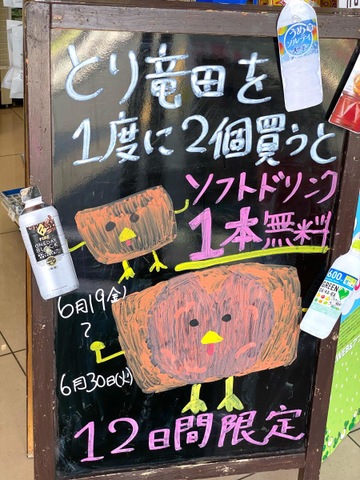 とり竜田を
1度に2個買うと
ソフトドリンク
1本無料
6月19(金)
〜
6月30日(火)
12日間限定
うめ
ソルティ
600
GREEN